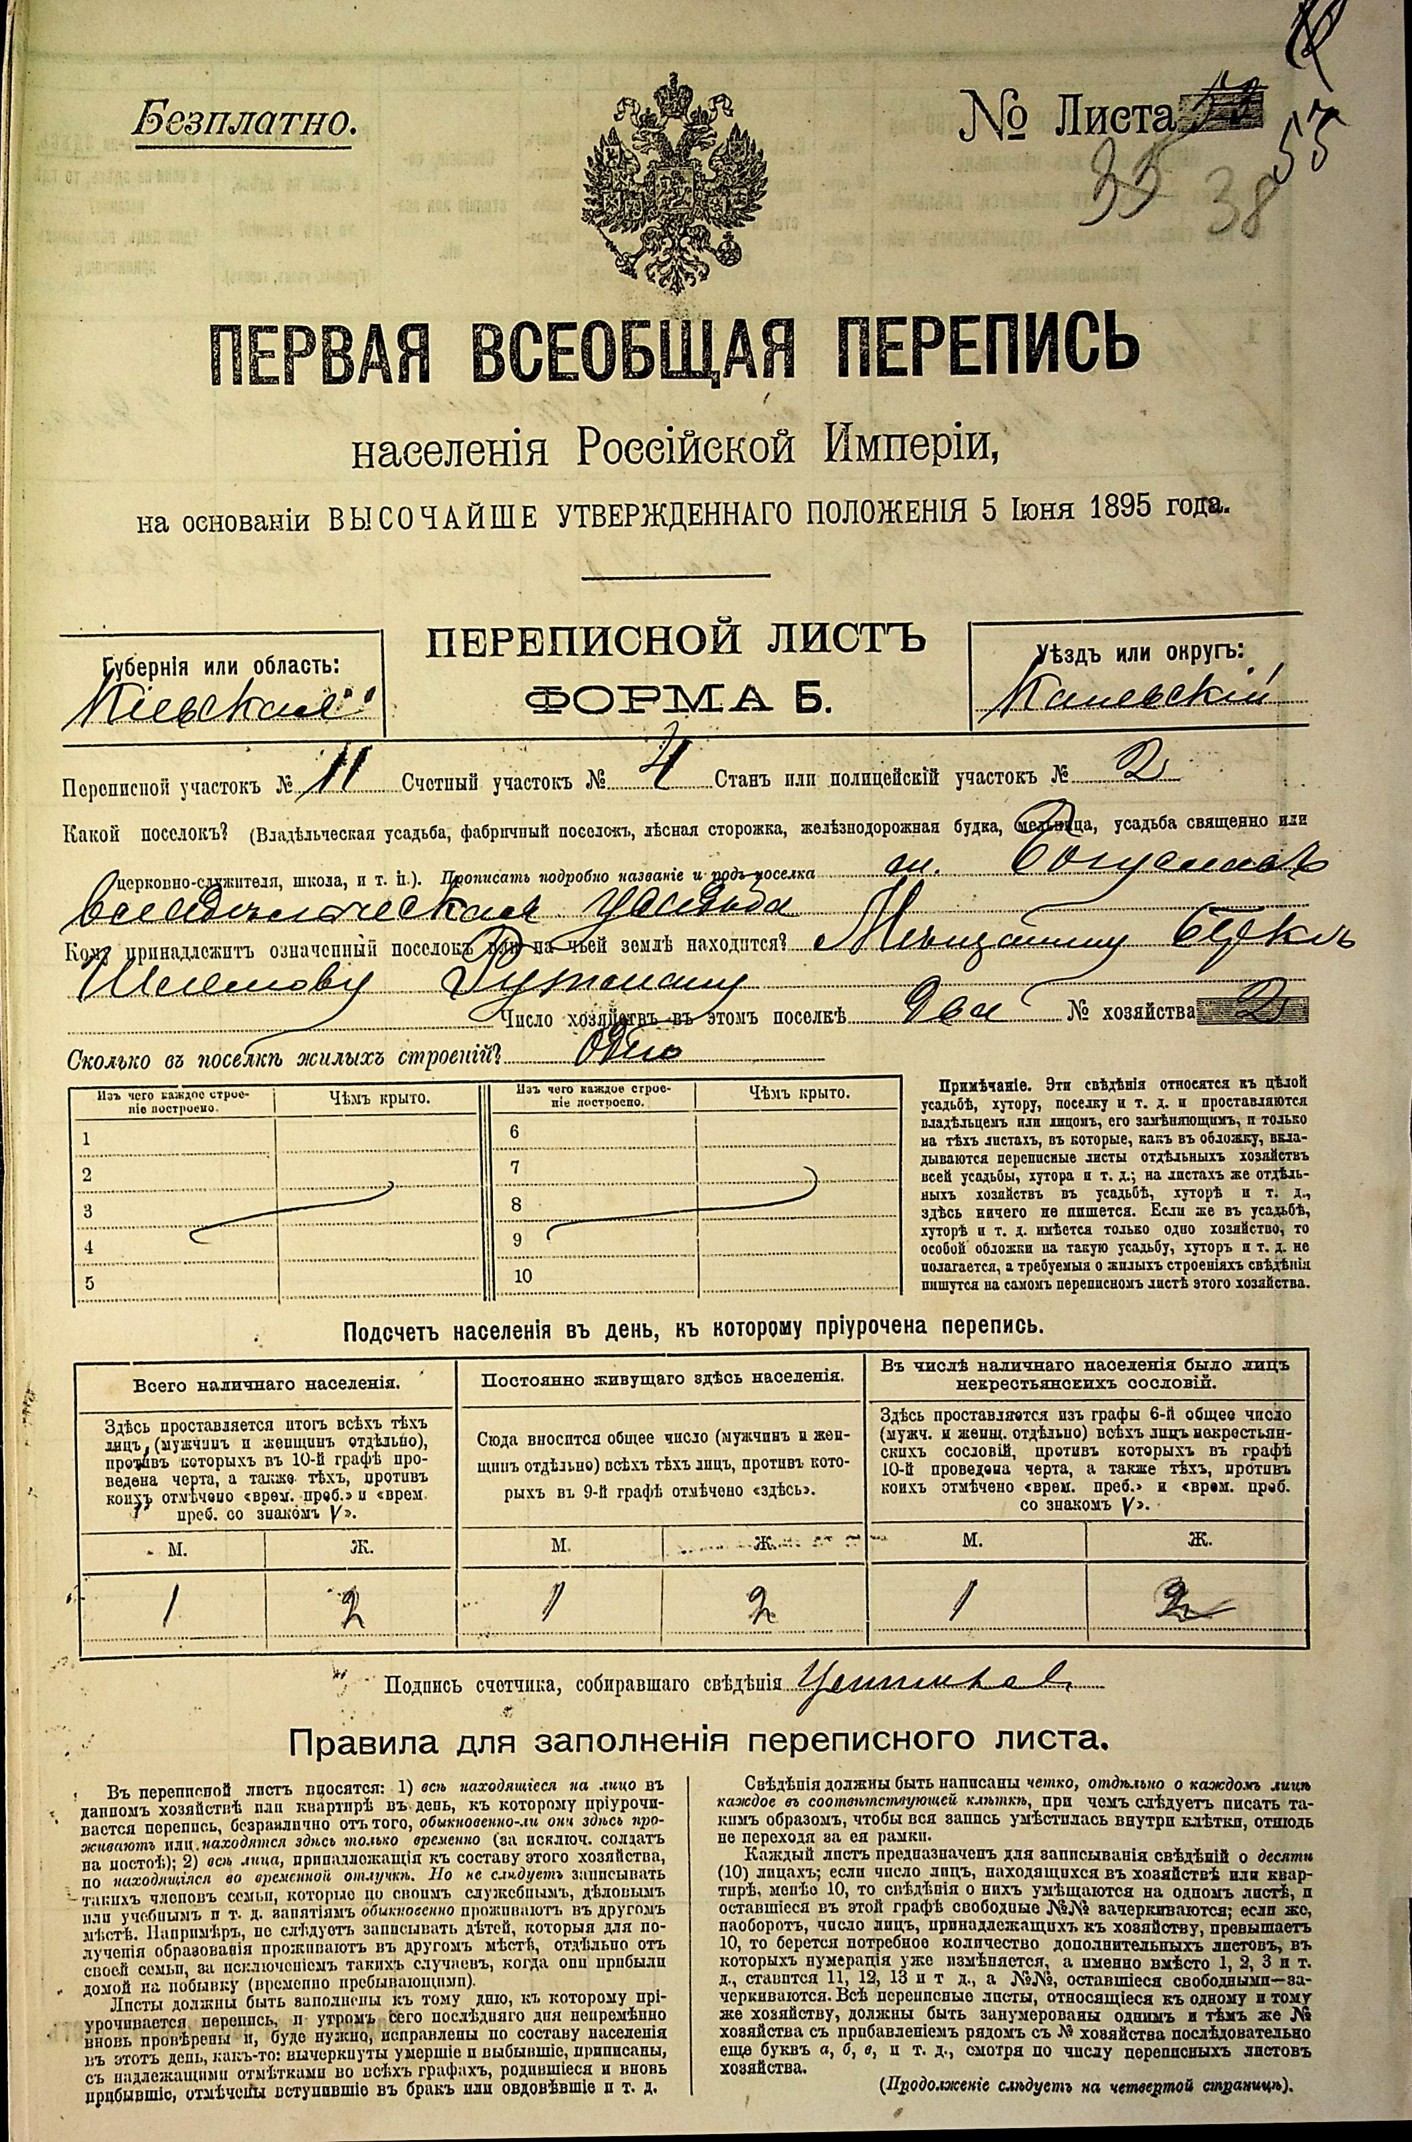 Безплатно.
№ Листа
53
35 38
ПЕРВАЯ ВСЕОБЩАЯ ПЕРЕПИСЬ
населенія Россійской Имперіи,
на основаніи ВЫСОЧАЙШЕ УТВЕРЖДЕННАГО ПОЛОЖЕНІЯ 5 Іюня 1895 года.
ПЕРЕПИСНОЙ ЛИСТЪ
ФОРМА Б.
Губернія или область:
Кіевская
Уѣздъ или округъ:
Каневскій
Переписной участокъ № 11 Счетный участокъ № 4 Станъ или полицейскій участокъ № 2
Какой поселокъ? (Владѣльческая усадьба, фабричный поселокъ, лѣсная сторожка, желѣзнодорожная будка, мельница, усадьба священно или
церковно-служителя, школа, и т. п.). Прописать подробно названіе и родъ поселка м. Богуславъ
владѣльческая усадьба
Кому принадлежитъ означенный поселокъ или на чьей землѣ находится? Мѣщанину Беркѣ
Шлемову
Число хозяйствъ въ этомъ поселкѣ два № хозяйства 2
Сколько въ поселкѣ жилыхъ строеній? одно
Изъ чего каждое строе-
ніе построено.
Чѣмъ крыто.
Изъ чего каждое строе-
ніе построено.
Чѣмъ крыто.
1
2
3
4
5
6
7
8
9
10
Примѣчаніе. Эти свѣдѣнія относятся къ цѣлой
усадьбѣ, хутору, поселку и т. д. и проставляются
владѣльцемъ или лицомъ, его замѣняющимъ, и только
на тѣхъ листахъ, въ которые, какъ въ обложку, вкла-
дываются переписные листы отдѣльныхъ хозяйствъ
всей усадьбы, хутора и т. д.; на листахъ же отдѣль-
ныхъ хозяйствъ въ усадьбѣ, хуторѣ и т. д.,
здѣсь ничего не пишется. Если же въ усадьбѣ,
хуторѣ и т. д. имѣется только одно хозяйство, то
особой обложки на такую усадьбу, хуторъ и т. д. не
полагается, а требуемыя о жилыхъ строеніяхъ свѣдѣнія
пишутся на самомъ переписномъ листѣ этого хозяйства.
Подсчетъ населенія въ день, къ которому пріурочена перепись.
Всего наличнаго населенія.
Здѣсь проставляется итогъ всѣхъ тѣхъ
лицъ, (мужчинъ и женщинъ отдѣльно),
противъ которыхъ въ 10-й графѣ про-
ведена черта, а также тѣхъ, противъ
коихъ отмѣчено «врем. преб.» и «врем.
преб. со знакомъ V».
М. Ж.
1 2
Постоянно живущаго здѣсь населенія.
Сюда вносится общее число (мужчинъ и жен-
щинъ отдѣльно) всѣхъ тѣхъ лицъ, противъ кото-
рыхъ въ 9-й графѣ отмѣчено «здѣсь».
М. Ж.
1 2
Въ числѣ наличнаго населенія было лицъ
некрестьянскихъ сословій.
Здѣсь проставляется изъ графы 6-й общее число
(мужч. и женщ. отдѣльно) всѣхъ лицъ некрестьян-
скихъ сословій, противъ которыхъ въ графѣ
10-й проведена черта, а также тѣхъ, противъ
коихъ отмѣчено «врем. преб.» и «врем. преб.
со знакомъ V».
М. Ж.
1 2
Подпись счетчика, собиравшаго свѣдѣнія
Правила для заполненія переписного листа.
Въ переписной листъ вносятся: 1) всѣ находящіеся на лицо въ
данномъ хозяйствѣ или квартирѣ въ день, къ которому пріурочи-
вается перепись, безразлично отъ того, обыкновенно-ли они здѣсь про-
живаютъ или находятся здѣсь только временно (за исключ. солдатъ
на постоѣ); 2) всѣ лица, принадлежащія къ составу этого хозяйства,
но находящіяся во временной отлучкѣ. Но не слѣдуетъ записывать
такихъ членовъ семьи, которые по своимъ служебнымъ, дѣловымъ
или учебнымъ и т. д. занятіямъ обыкновенно проживаютъ въ другомъ
мѣстѣ. Напримѣръ, не слѣдуетъ записывать дѣтей, которыя для по-
лученія образованія проживаютъ въ другомъ мѣстѣ, отдѣльно отъ
своей семьи, за исключеніемъ такихъ случаевъ, когда они прибыли
домой на побывку (временно пребывающими).
Листы должны быть заполнены къ тому дню, къ которому прі-
урочивается перепись, и утромъ сего послѣдняго дня непремѣнно
вновь провѣрены и, буде нужно, исправлены по составу населенія
въ этотъ день, какъ-то: вычеркнуты умершіе и выбывшіе, приписаны,
съ надлежащими отмѣтками во всѣхъ графахъ, родившіеся и вновь
прибывшіе, отмѣчены вступившіе въ бракъ или овдовѣвшіе и т. д.
Свѣдѣнія должны быть написаны четко, отдѣльно о каждомъ лицѣ
каждое въ соотвѣтствующей клѣткѣ, при чемъ слѣдуетъ писать та-
кимъ образомъ, чтобы вся запись умѣстилась внутри клѣтки, отнюдь
не переходя за ея рамки.
Каждый листъ предназначенъ для записыванія свѣдѣній о десяти
(10) лицахъ; если число лицъ, находящихся въ хозяйствѣ или квар-
тирѣ, менѣе 10, то свѣдѣнія о нихъ умѣщаются на одномъ листѣ, и
оставшіеся въ этой графѣ свободные №№ зачеркиваются; если же,
наоборотъ, число лицъ, принадлежащихъ къ хозяйству, превышаетъ
10, то берется потребное количество дополнительныхъ листовъ, въ
которыхъ нумерація уже измѣняется, а именно вмѣсто 1, 2, 3 и т.
д., ставится 11, 12, 13 и т д., а №№, оставшіеся свободными—за-
черкиваются. Всѣ переписные листы, относящіеся къ одному и тому
же хозяйству, должны быть занумерованы однимъ и тѣмъ же №
хозяйства съ прибавленіемъ рядомъ съ № хозяйства послѣдовательно
еще буквъ а, б, в, и т. д., смотря по числу переписныхъ листовъ
хозяйства.
(Продолженіе слѣдуетъ на четвертой страницѣ).